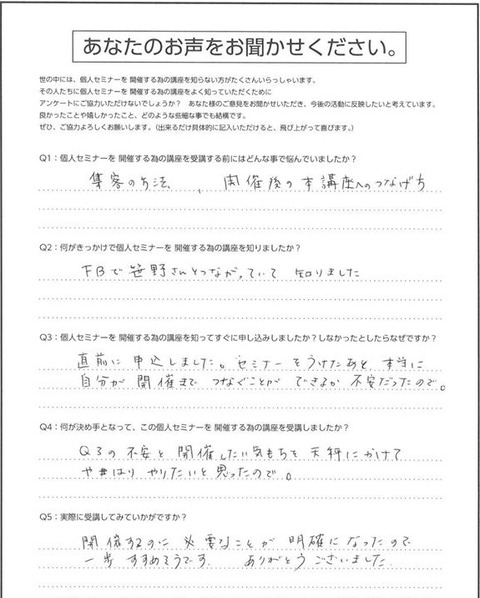 あなたのお声をお聞かせください。
世の中には、個人セミナーを 開催する為の講座を知らない方がたくさんいらっしゃいます。
その人たちに個人セミナーを 開催する為の講座をよく知っていただくために
アンケートにご協力いただけないでしょうか？ あなた様のご意見をお聞かせいただき、今後の活動に反映したいと考えています。
良かったことや嬉しかったこと、どのような些細な事でも結構です。
ぜひ、ご協力よろしくお願いします。（出来るだけ具体的に記入いただけると、飛び上がって喜びます。）
Q1：個人セミナーを 開催する為の講座を受講する前にはどんな事で悩んでいましたか？
集客の方法、 開催後の本講座へのつなげ方
Q2：何がきっかけで個人セミナーを 開催する為の講座を知りましたか？
FBで笹野さんとつながっていて 知りました
Q3：個人セミナーを 開催する為の講座を知ってすぐに申し込みしましたか？しなかったとしたらなぜですか？
直前に申込しました。セミナーをうけたあと 本当に
自分が 開催まで つなぐことが できるか 不安だったので。
Q4：何が決め手となって、この個人セミナーを 開催する為の講座を受講しましたか？
Q3の 不安と 開催したい気もちを 天秤にかけて
やはり やりたいと思ったので。
Q5：実際に受講してみていかがですか？
開催するのに 必要なことが 明確になったので
一歩 すすめそうです。 ありがとうございました。